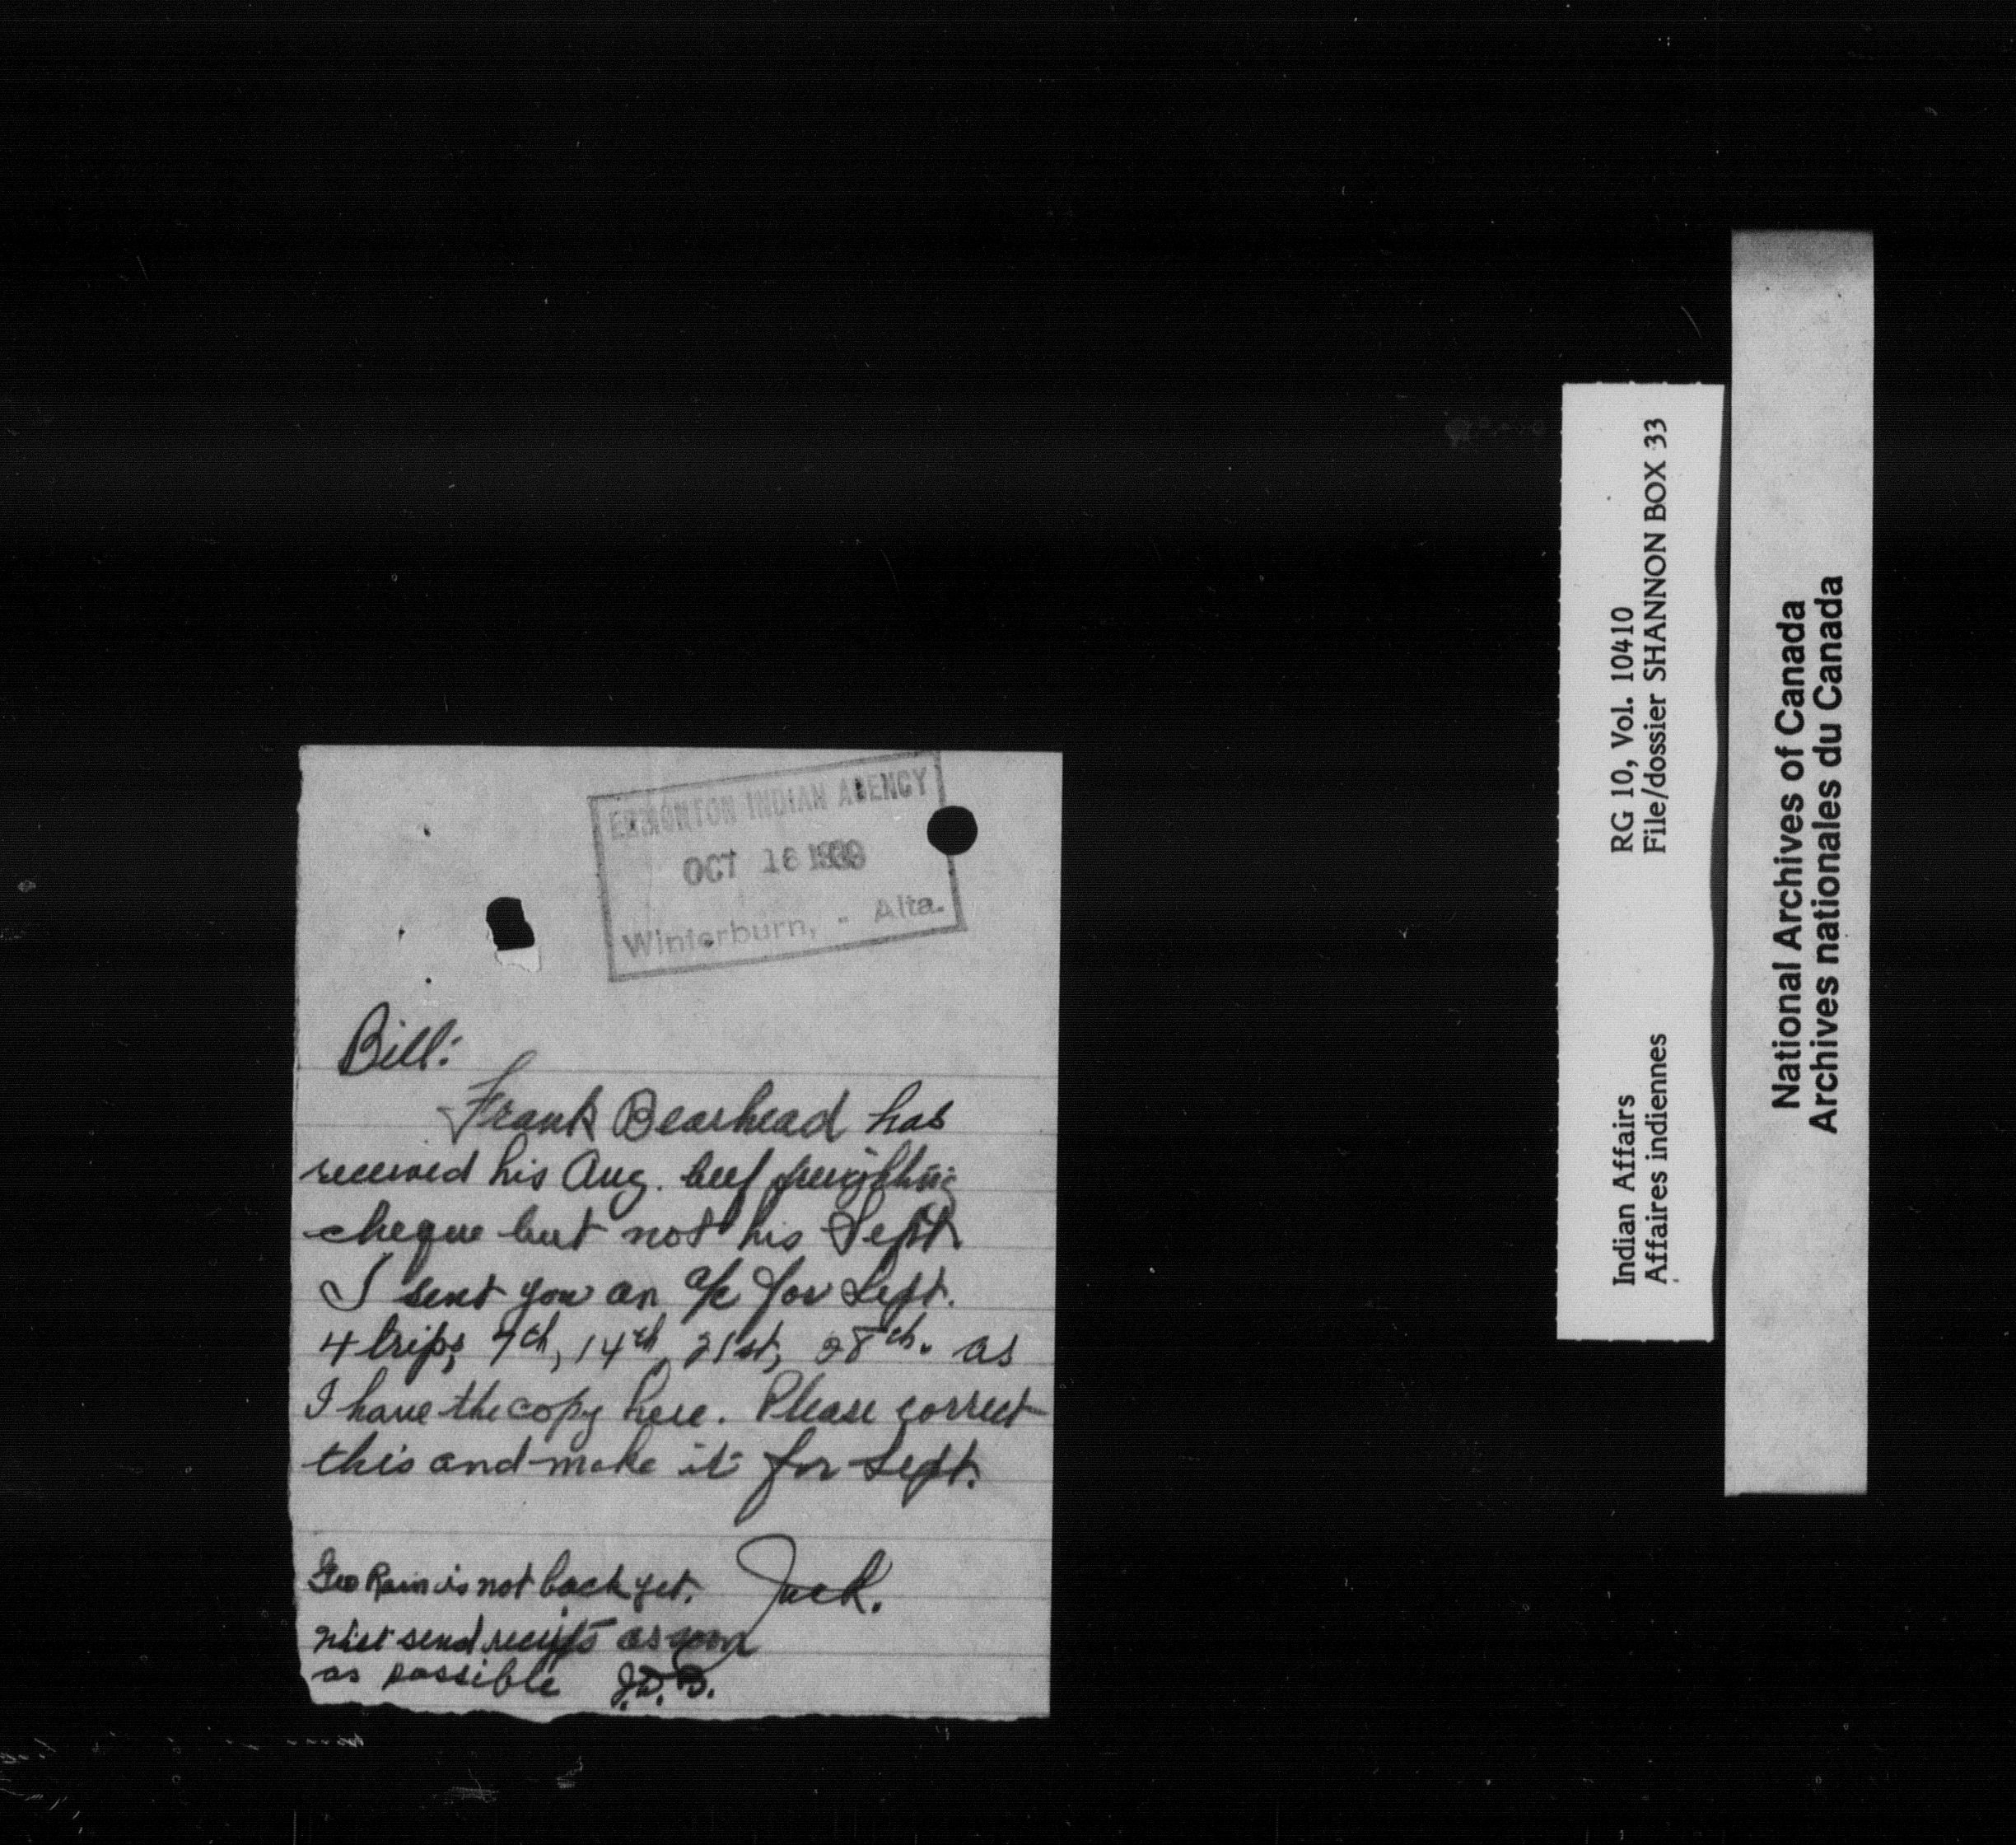 EDMONTON INDIAN AGENCY
OCT 16 1939
Winterburn, - Alta.
Bill:
Frank Bearhead has
received his Aug. beef freighting
cheque but not his Sept.
I sent you an a/c for Sept.
4 trips, 7th, 14th, 21st, 28th. as
I have the copy here. Please correct
this and make it for Sept.
Jack.
Geo Rain is not back yet.
Will send receipts as soon
as possible J.D.B.
Indian Affairs RG 10, Vol. 10410
Affaires indiennes File/dossier SHANNON BOX 33
National Archives of Canada
Archives nationales du Canada